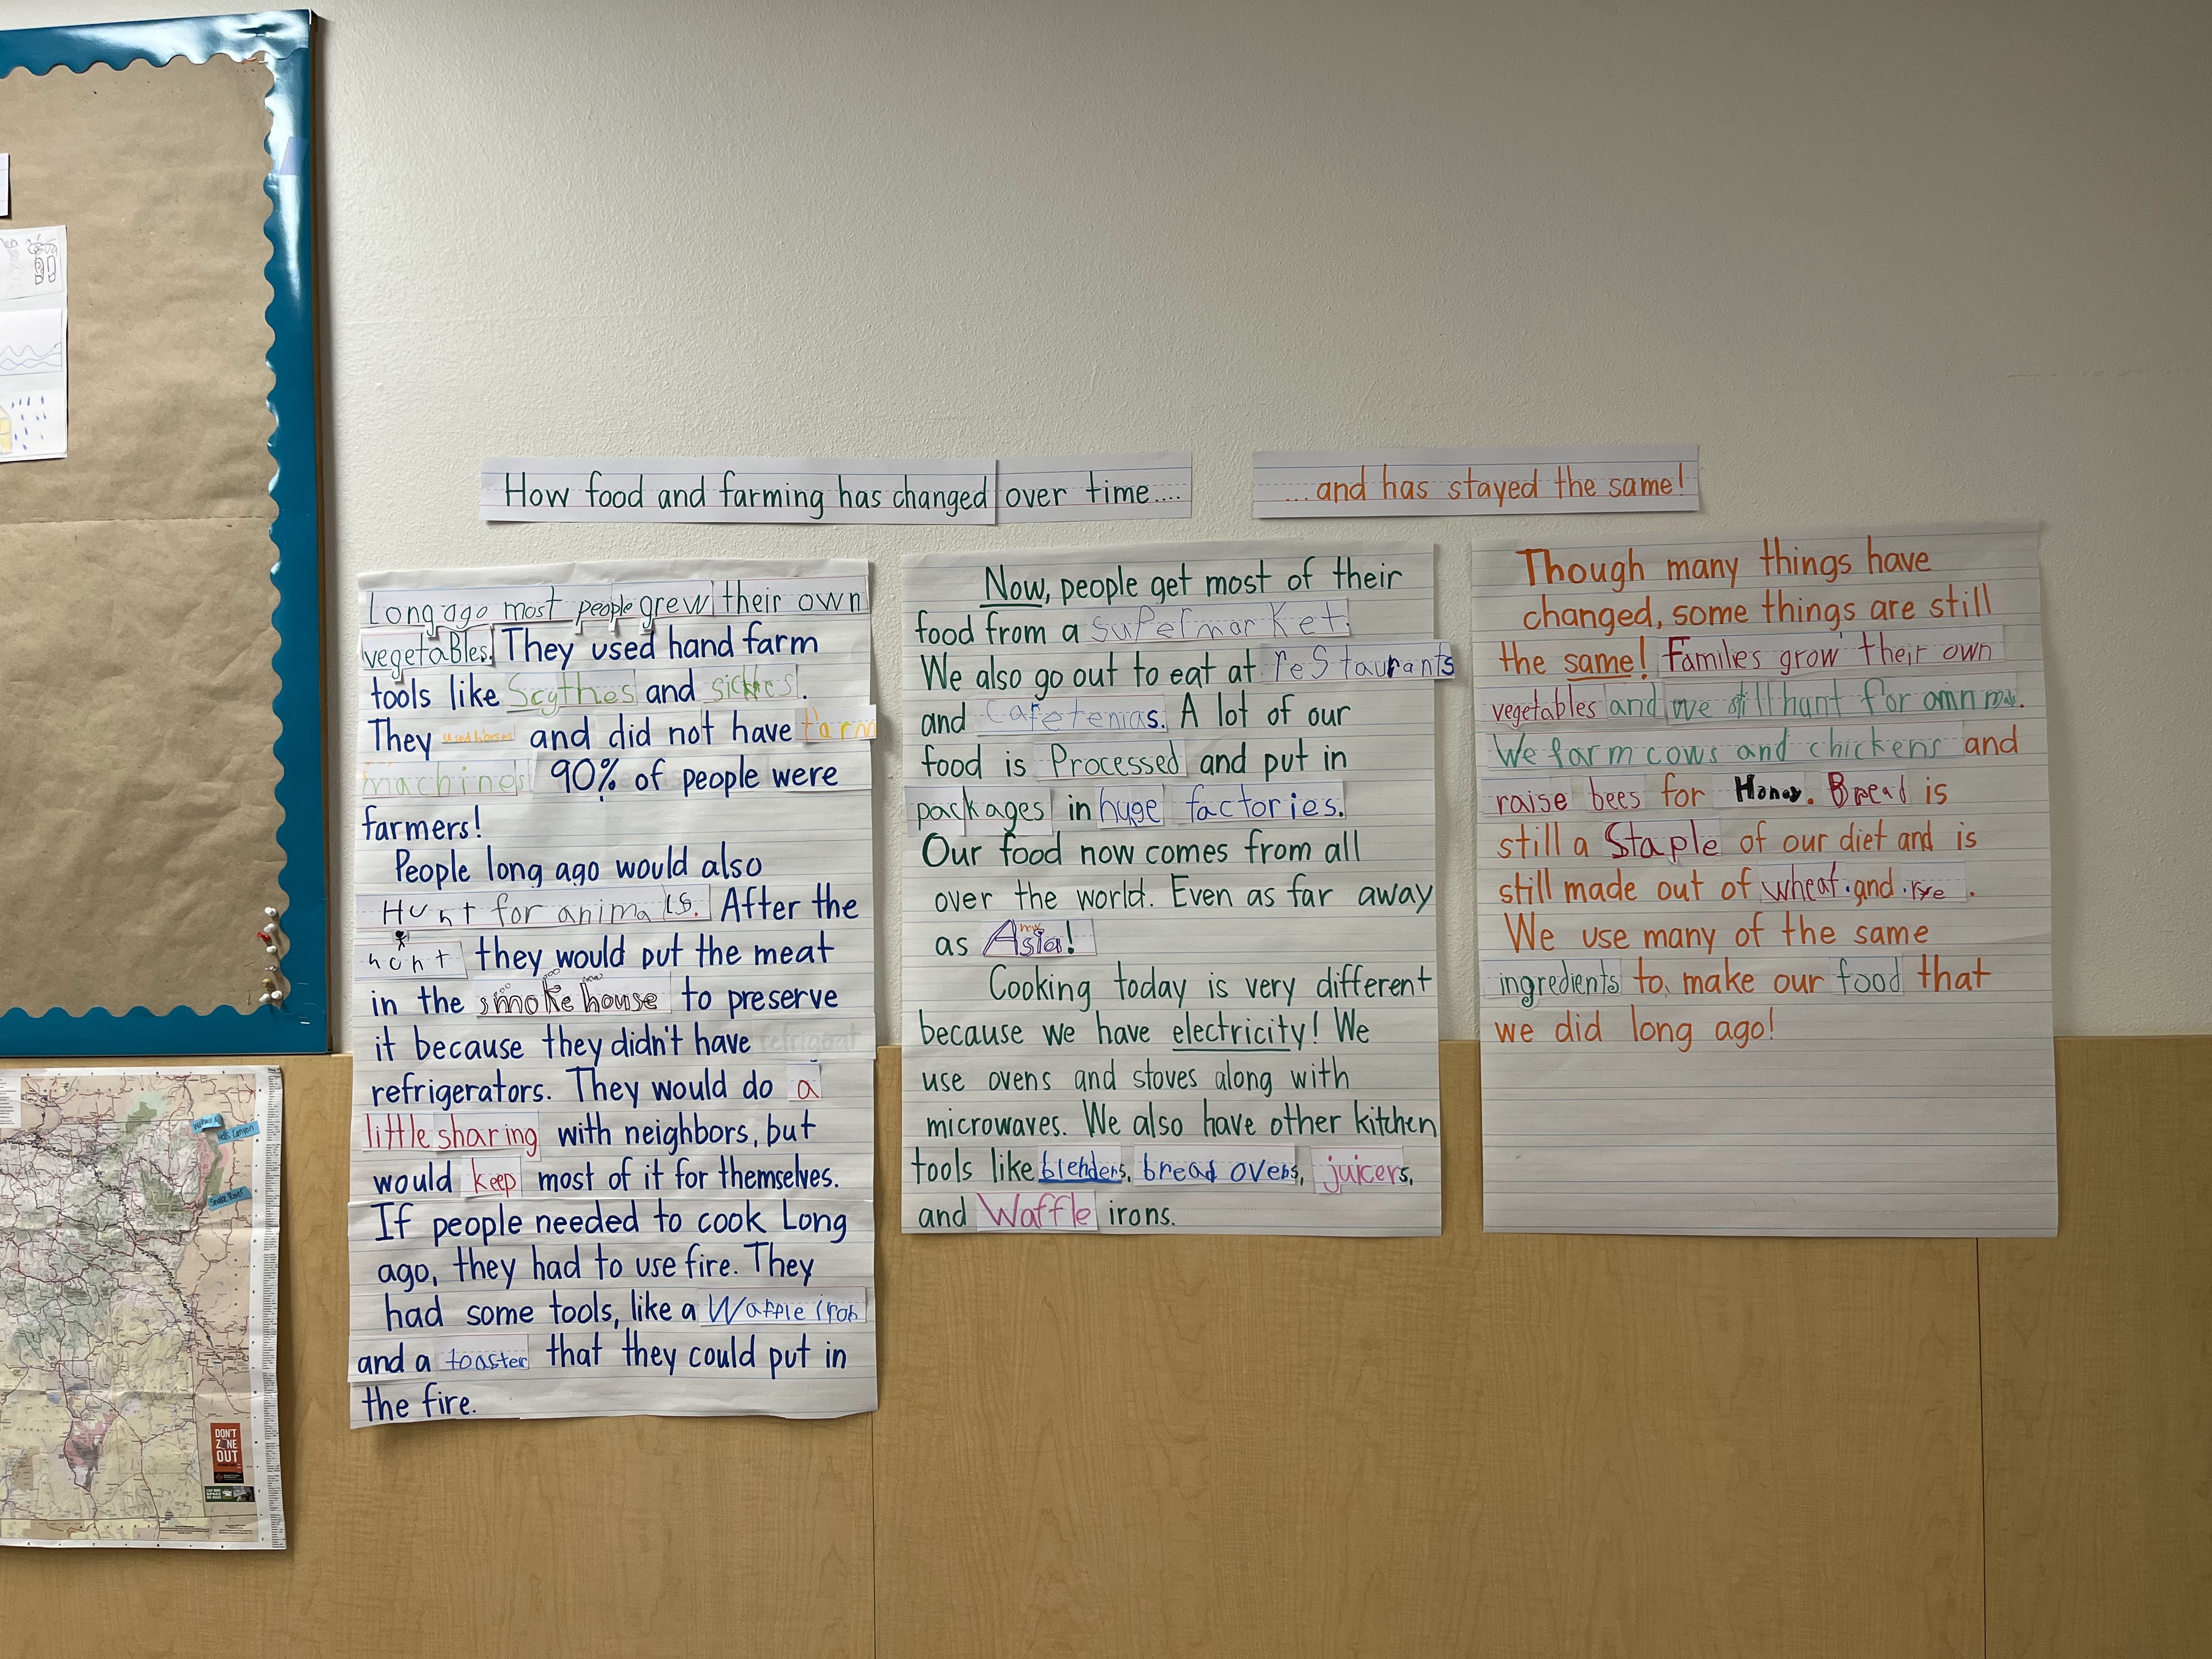 How food and farming has changed over time....
...and has stayed the same!
Long ago most people grew their own
vegetables. They used hand farm
tools like Scythes and sickles.
They used horses and did not have farm
machines! 90% of people were
farmers!
People long ago would also
Hunt for animals. After the
hunt they would put the meat
in the smoke house to preserve
it because they didn't have refrigeat
refrigerators. They would do a
little sharing with neighbors, but
would keep most of it for themselves.
If people needed to cook Long
ago, they had to use fire. They
had some tools, like a Waffle iron
and a toaster that they could put in
the fire.
Now, people get most of their
food from a supermarket.
We also go out to eat at reStaurants
and Cafetenias. A lot of our
food is Processed and put in
packages in huge factories.
Our food now comes from all
over the world. Even as far away
as Asia!
Cooking today is very different
because we have electricity! We
use ovens and stoves along with
microwaves. We also have other kitchen
tools like blenders, bread ovens, juicers,
and Waffle irons.
Though many things have
changed, some things are still
the same! Familes grow their own
vegetables and we still hunt for
We farm cows and chickens and
raise bees for Honey. Bread is
still a Staple of our diet and is
still made out of wheat and rye.
We use many of the same
ingredients to make our food that
we did long ago!
Hells Canyon
Snake River
DON'T
Z NE
OUT